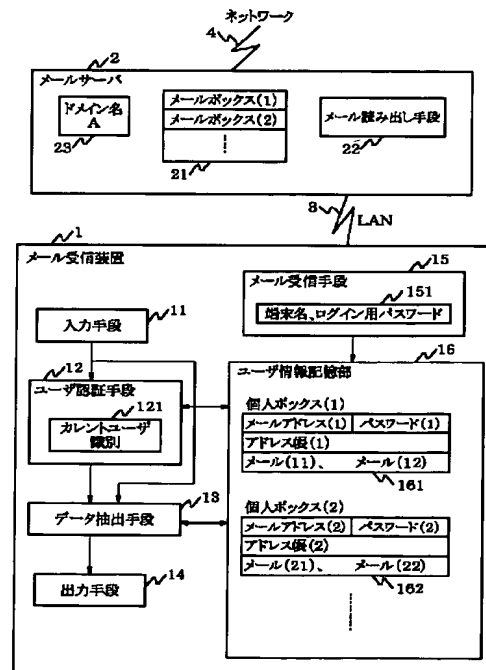 ネットワーク
4
2
メールサーバ
ドメイン名
A
23
メールボックス(1)
メールボックス(2)
21
メール読み出し手段
22
3
LAN
1
メール受信装置
15
メール受信手段
151
端末名、ログイン用パスワード
11
入力手段
12
ユーザ認証手段
121
カレントユーザ
識別
13
データ抽出手段
14
出力手段
16
ユーザ情報記憶部
個人ボックス(1)
メールアドレス(1) パスワード(1)
アドレス帳(1)
メール(11)、 メール(12)
161
個人ボックス(2)
メールアドレス(2) パスワード(2)
アドレス帳(2)
メール(21)、 メール(22)
162